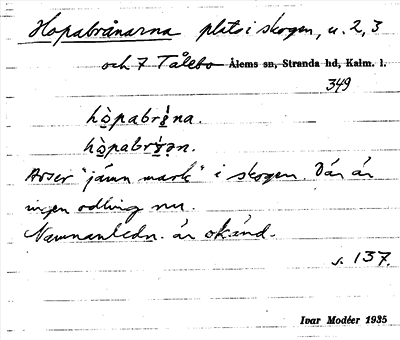 Hopabrånarna plats i skogen, u. 2, 3
och 7 Tålebo Ålems sn, Stranda hd, Kalm. l.
349
hòpabrå̀na.
hòpabry̌ən.
Avser "jämn mark" i skogen. Där är
ingen odling nu.
Namnanledn. är okänd.
s. 137.
Ivar Modéer 1935